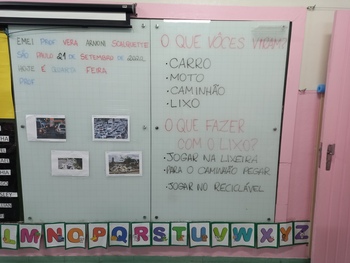 EMEI PROF. VERA ARNONI SCALQUETTE
SÃO PAULO 21 DE SETEMBRO DE 2022
HOJE É QUARTA FEIRA
PROF
O QUE VOCES VIRAM
• CARRO
• MOTO
• CAMINHÃO
• LIXO
O QUE FAZER
COM O LIXO?
• JOGAR NA LIXEIRA
• PARA O CAMINHÃO PEGAR
• JOGAR NO RECICLÁVEL
L M N O P Q R S T U V W X Y Z